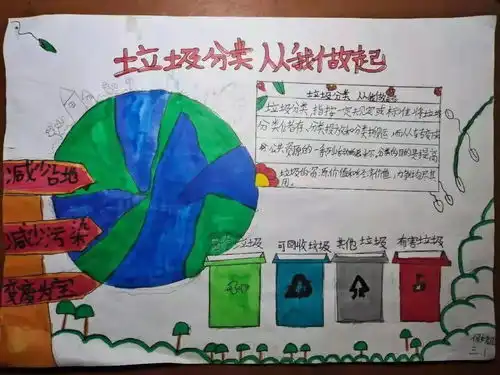 垃圾分类 从我做起
垃圾分类 从我做起
垃圾分类,指按一定规定或标准将垃圾
分类储存、分类投放和分类搬运,从而转变成
公共资源的一系列活动的总称,分类的目的是提高
垃圾的资源价值和经济价值,力争物尽其
用。
减少占地
减少污染
变废为宝
垃圾
可回收垃圾
其他垃圾
有害垃圾
三.1